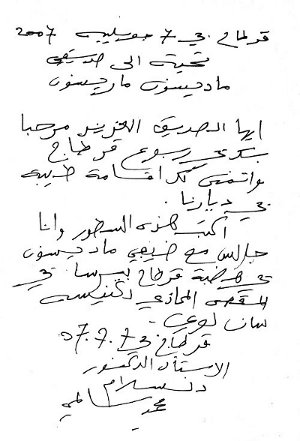 قرطاج في 7 جويلية 2007
تحية الى صديقي
ماديسون ماريسون
ايها الصديق العزيز مرحبا
بكم في ربوع قرطاج
واتمنى لكم اقامة طيبة
في ديارنا.
اكتب هذه السطور وانا
جالس مع ضيفي ماديسون
في هضبة قرطاج بيرسا في
المقهى المحاذي لكنيسة
سان لوي.
قرطاج في 7.7.07
الاستاذ الدكتور